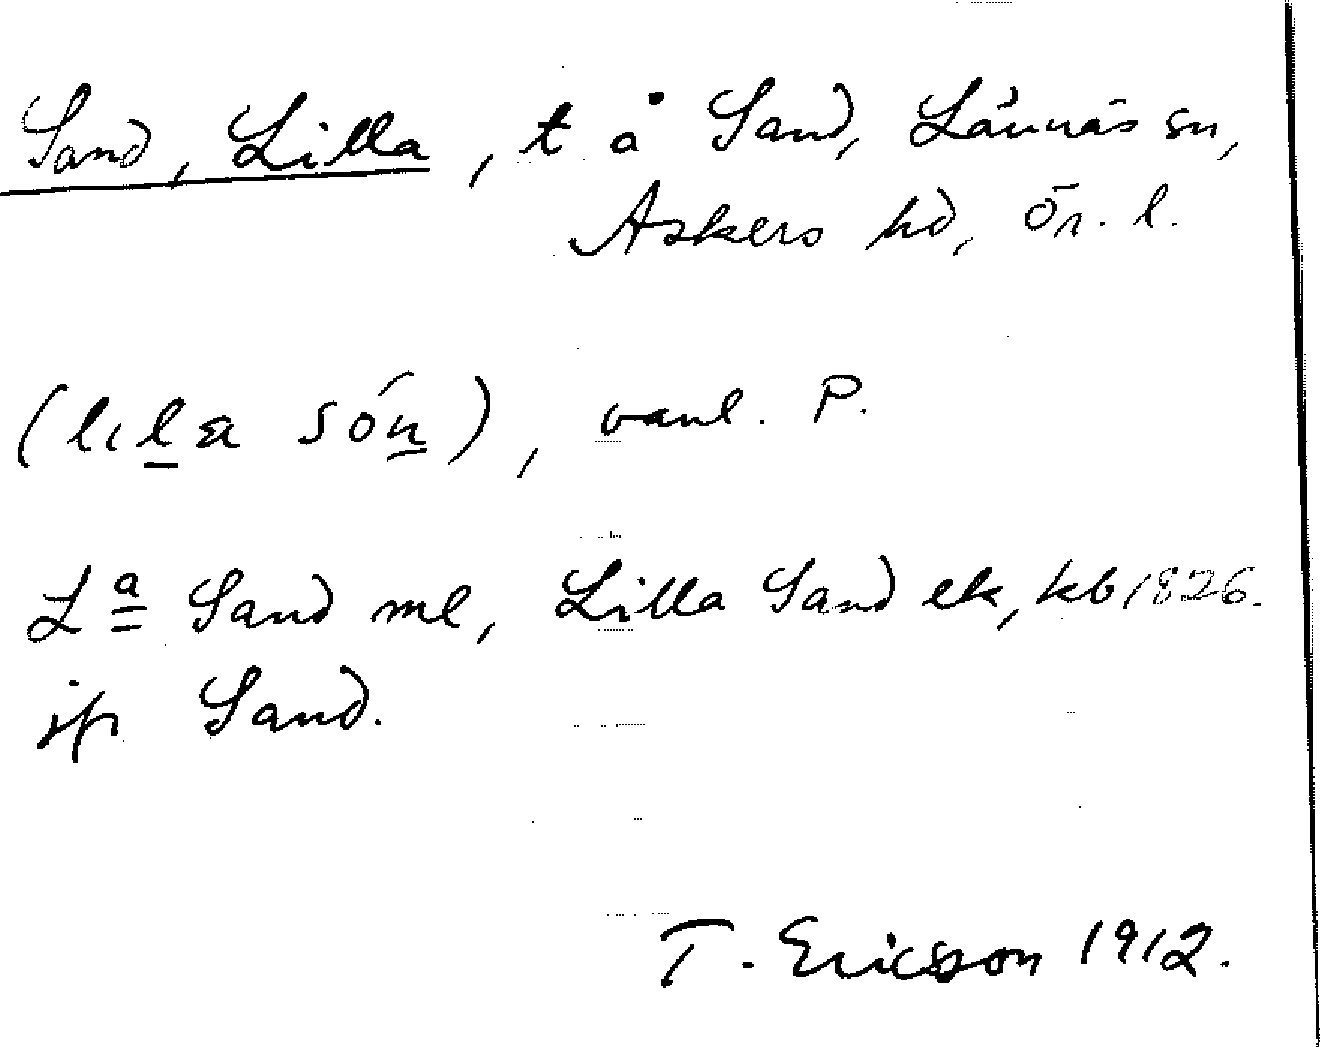 Sand, Lilla, t å Sand, Lännäs sn,
Askers hd, Ör. l.
(lıla són), vanl. P.
La Sand ml, Lilla Sand ek, kb 1826.
jfr Sand.
T. Ericsson 1912.